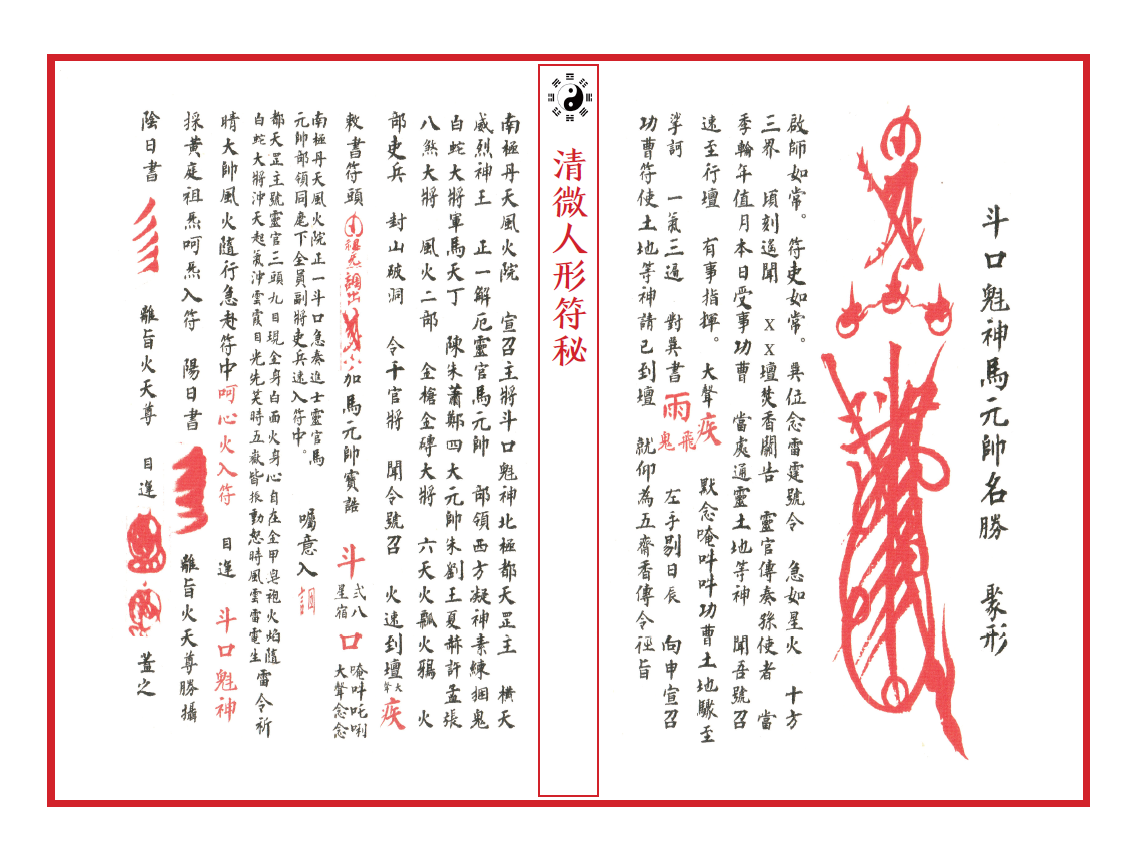 斗口魁神馬元帥名勝　聚形
啟師如常。符吏如常。巽位念雷霆號令　急如星火　十方
三界　頃刻遙聞　X X壇焚香關告　靈官傳奏孫使者　當
季輪年值月本日受事功曹　當處通靈土地等神　聞吾號召
速至行壇　有事指揮。大聲疾　默念唵吽吽功曹土地驟至
挲訶　一氣三遍　對巽書雨飛鬼　左手剔日辰　向申宣召
功曹符使土地等神請已到壇　就仰為五齋香傳令徑旨
清微人形符秘
南極丹天風火院　宣召主將斗口魁神北極都天罡主　橫天
威烈神王　正一解厄靈官馬元帥　部領西方凝神素練捆鬼
白蛇大將軍馬天丁　陳朱蕭鄭四大元帥朱劉王夏赫許孟張
八煞大將　風火二部　金槍金磚大將　六天火瓢火鴉　火
部吏兵　封山破洞　令千官將　聞令號召　火速到壇大聲疾
敕書符頭
加馬元帥寶誥　斗　弍八星宿　口　唵吽吒唎大聲念念
南極丹天風火院正一斗口急奏進士靈官馬
元帥部領同麾下全員副將吏兵速入符中。　囑意入
都天罡主號靈官三頭九目現金身白面火身心自在金甲皂袍火焰隨
白蛇大將沖天起氣沖雲霞目光先笑時五嶽皆振動怒時風雲雷電生　雷令祈
晴大帥風火隨行急赴符中呵心火入符　目運　斗口魁神
採黃庭祖炁呵炁入符　陽日書　離旨火天尊勝攝
陰日書　離旨火天尊　目運　蓋之